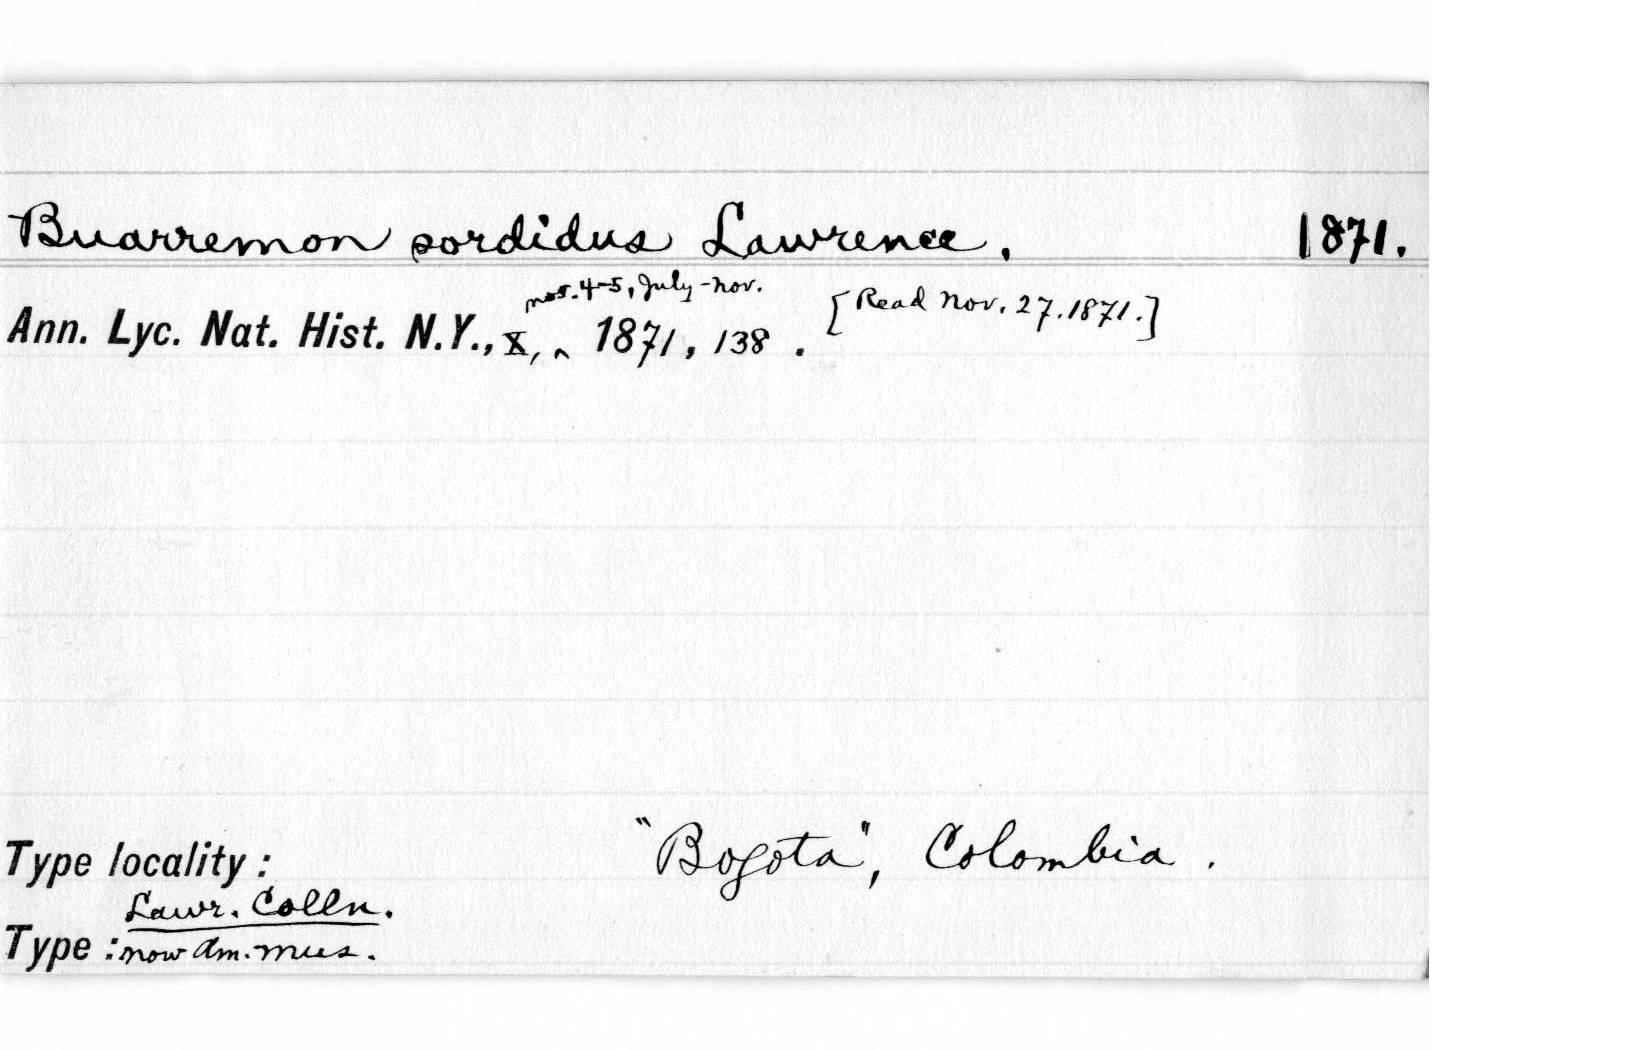 Buarremon sordidus Lawrence. 1871.
nos. 4-5, July-Nov. [Read Nov. 27. 1871.]
Ann. Lyc. Nat. Hist. N.Y., X, ‸ 1871, 138.
Type locality: "Bogota", Colombia.
Lawr. Colln.
Type: now Am. Mus.